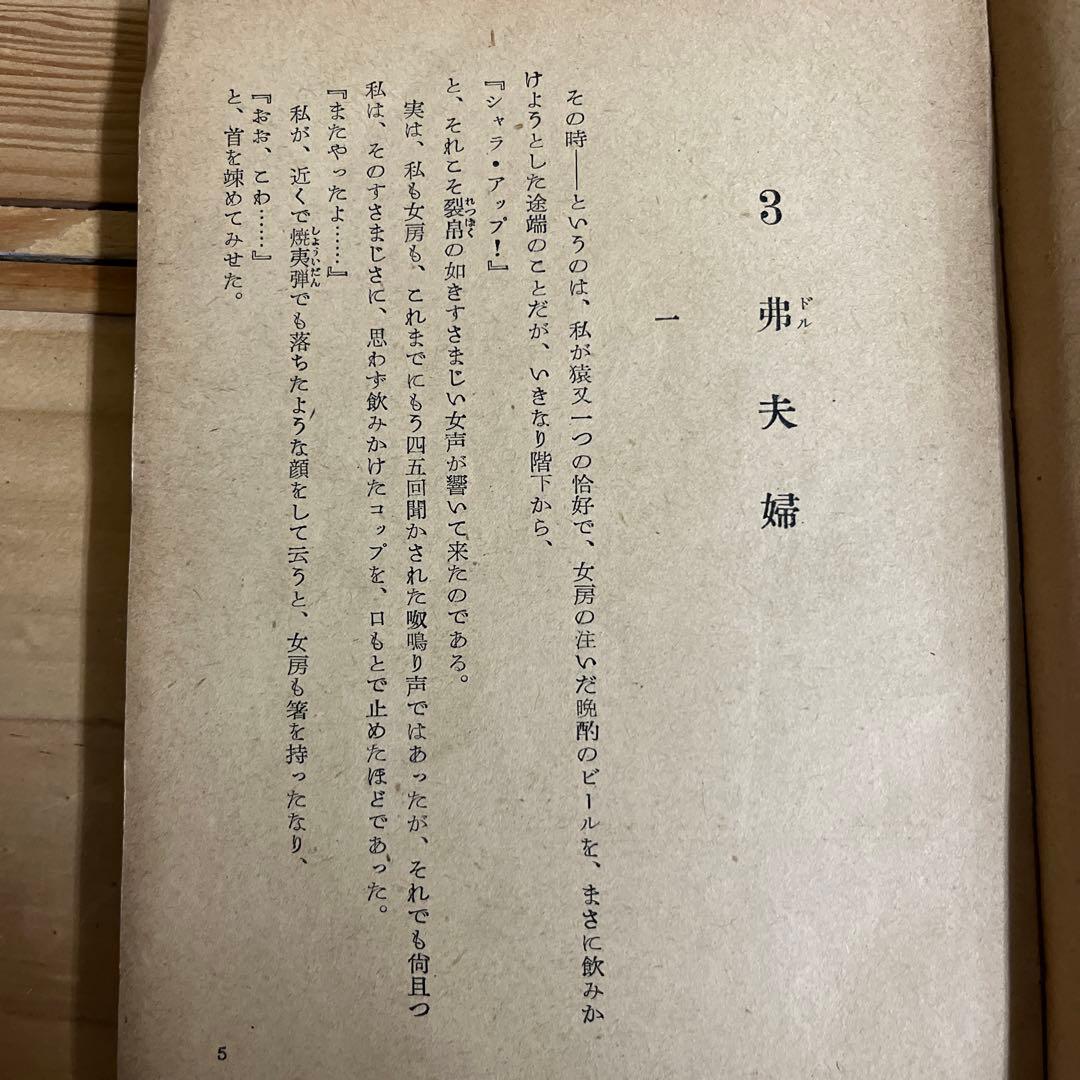 3弗夫婦
ドル
一
その時――というのは、私が猿又一つの恰好で、女房の注いだ晩酌のビールを、まさに飲みか
けようとした途端のことだが、いきなり階下から、
『シャラ・アップ！』
と、それこそ裂帛の如きすさまじい女声が響いて来たのである。
れつぱく
実は、私も女房も、これまでにもう四五回聞かされた呶鳴り声ではあったが、それでも尙且つ
私は、そのすさまじさに、思わず飲みかけたコップを、口もとで止めたほどであった。
『またやったよ……』
私が、近くで焼夷弾でも落ちたような顔をして云うと、女房も箸を持ったなり、
しょういだん
『おお、こわ……』
と、首を竦めてみせた。
5